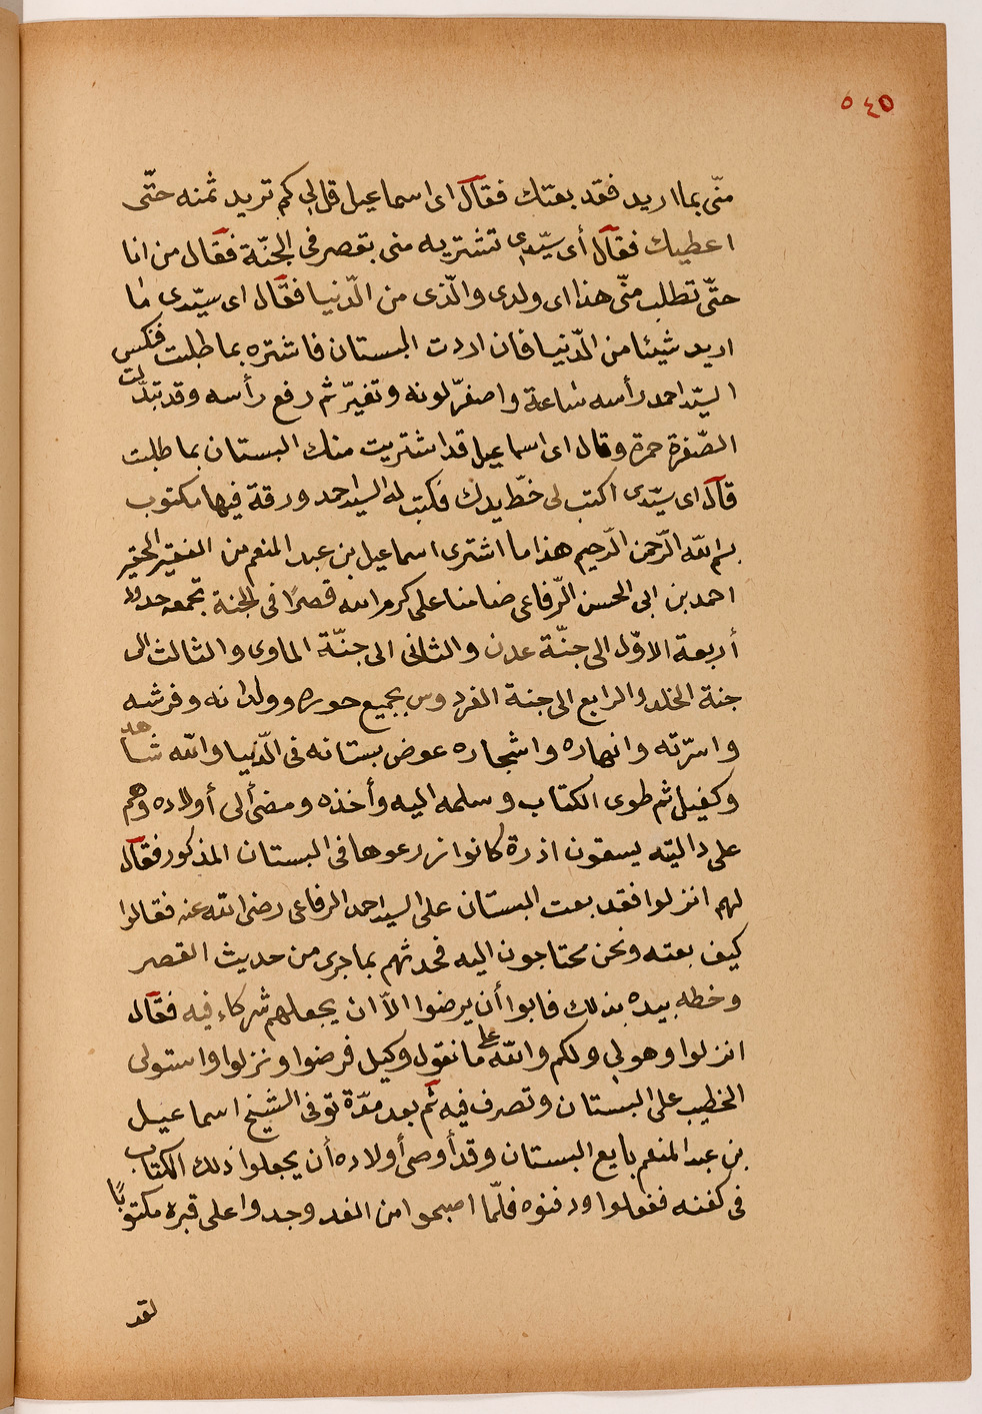 ٥٤٥
منّى بما اريد فقد بعتك فقال اى اسماعيل قل لى كم تريد ثمنه حتّى
اعطيك فقال أى سيّدى تشتريه منى بقصر فى الجنّة فقال من انا
حتّى تطلب منّى هذا اى ولدى والّذى من الدّنيا فقال اى سيّدى ما
اريد شيئا من الدّنيا فان اردت البستان فاشتره بما طلبت فنكس
السيّد احمد رأسه ساعة واصفرّ لونه وتغيّر ثم رفع رأسه وقد تبدّلت
الصّفرة حمرة وقال اى اسماعيل قد اشتريت منك البستان بما طلبت
قال اى سيّدى اكتب لى خطّ يدك فكتب له السيد احمد ورقة فيها مكتوب
بسم الله الرّحمن الرّحيم هذا ما اشترى اسماعيل بن عبد المنعم من الفقير الحقير
احمد بن ابى الحسن الرّفاعى ضامنا على كرم الله قصرًا فى الجنة تجمعه حدود
أربعة الاوّل الى جنّة عدن والثانى الى جنّة الماوى والثالث الى
جنة الخلد والرابع الى جنة الفردوس بجميع حوره وولدانه وفرشه
واسرّته وانهاره واشجاره عوض بستانه فى الدّنيا والله شاهد
وكفيل ثم طوى الكتاب وسلمه اليه وأخذه ومضى ألى أولاده وهم
على داليته يسقون اذرة كانوا زرعوها فى البستان المذكور فقال
لهم انزلوا فقد بعت البستان على السيد احمد الرفاعى رضى الله عنه فقالوا
كيف بعته ونحن محتاجون اليه فحدثهم بما جرى من حديث القصر
وخطه بيده بذلك فابوا أن يرضوا الاّ ان يجعلهم شركاء فيه فقال
انزلوا وهو لى ولكم والله على ما نقول وكيل فرضوا ونزلوا واستولى
الخطيب على البستان وتصرف فيه ثم بعد مدّة توفى الشيخ اسماعيل
بن عبد المنعم بايع البستان وقد أوصى أولاده أن يجعلوا ذلك الكتاب
فى كفنه ففعلوا ودفنوه فلمّا اصبحوا من الغد وجدوا على قبره مكتوبًا
لقد